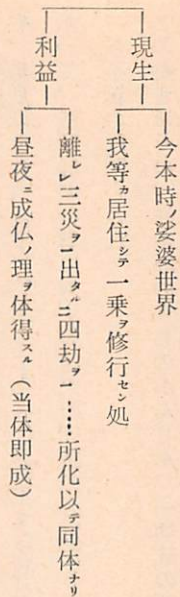 現生
今本時ノ娑婆世界
我等カ居住シテ一乗ヲ修行セン処
利益
離レ三災ヲ一出タル二四劫ヲ一……所化以テ同体ナリ
昼夜ニ成仏ノ理ヲ体得スル（当体即成）